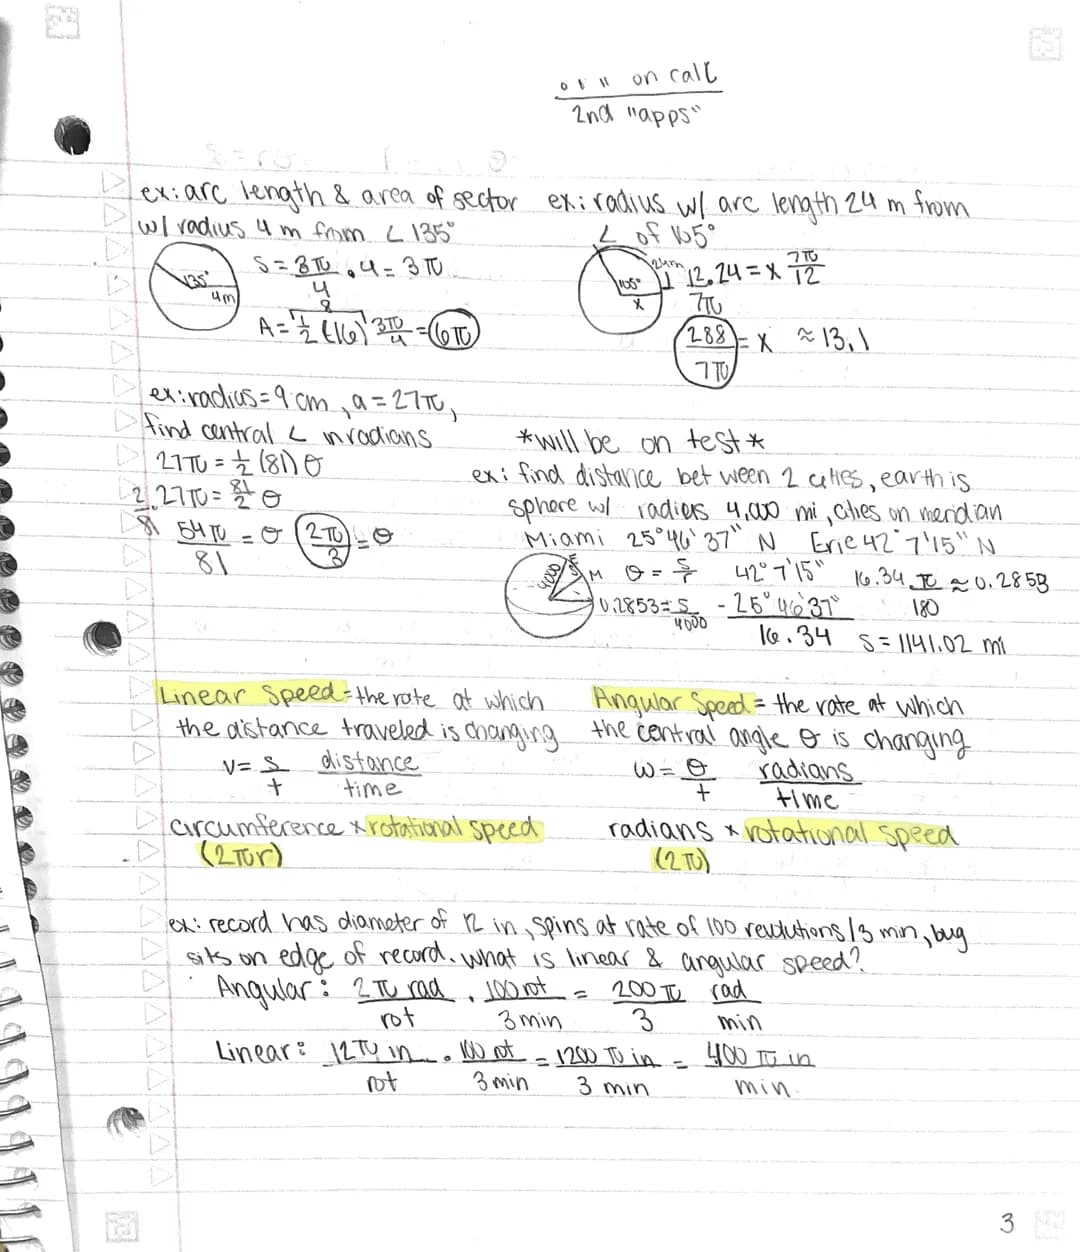 ° ' " on calc
2nd "apps"
ex: arc length & area of sector
w/ radius 4 m from ∠ 135°
135°
4m
S = 3π/4 · 4 = 3π
A = 1/2 (16) 3π/4 = 6π
ex: radius w/ arc length 24 m from
∠ of 105°
24m
105°
x
12/7π · 24 = x 7π/12
288/7π = x ≈ 13.1
ex: radius = 9 cm, a = 27π,
find central ∠ in radians
27π = 1/2 (81) θ
2/81 · 27π = 81/2 θ
54π/81 = θ 2π/3 = θ
*will be on test*
ex: find distance between 2 cities, earth is
sphere w/ radius 4,000 mi, cities on meridian
Miami 25° 46' 37" N Erie 42° 7' 15" N
4000
E
M
θ = s/r 42° 7' 15" 16.34 · π/180 ≈ 0.2853
0.2853 = s/4000 - 25° 46' 37"
16.34 S = 1141.02 mi
Linear Speed = the rate at which
the distance traveled is changing
v = s/t distance/time
circumference × rotational speed
(2πr)
Angular Speed = the rate at which
the central angle θ is changing
w = θ/t radians/time
radians × rotational speed
(2π)
ex: record has diameter of 12 in, spins at rate of 100 revolutions/3 min, bug
sits on edge of record. What is linear & angular speed?
Angular: 2π rad/rot · 100 rot/3 min = 200π/3 rad/min
Linear: 12π in/rot · 100 rot/3 min = 1200 π in/3 min = 400 π in/min
3